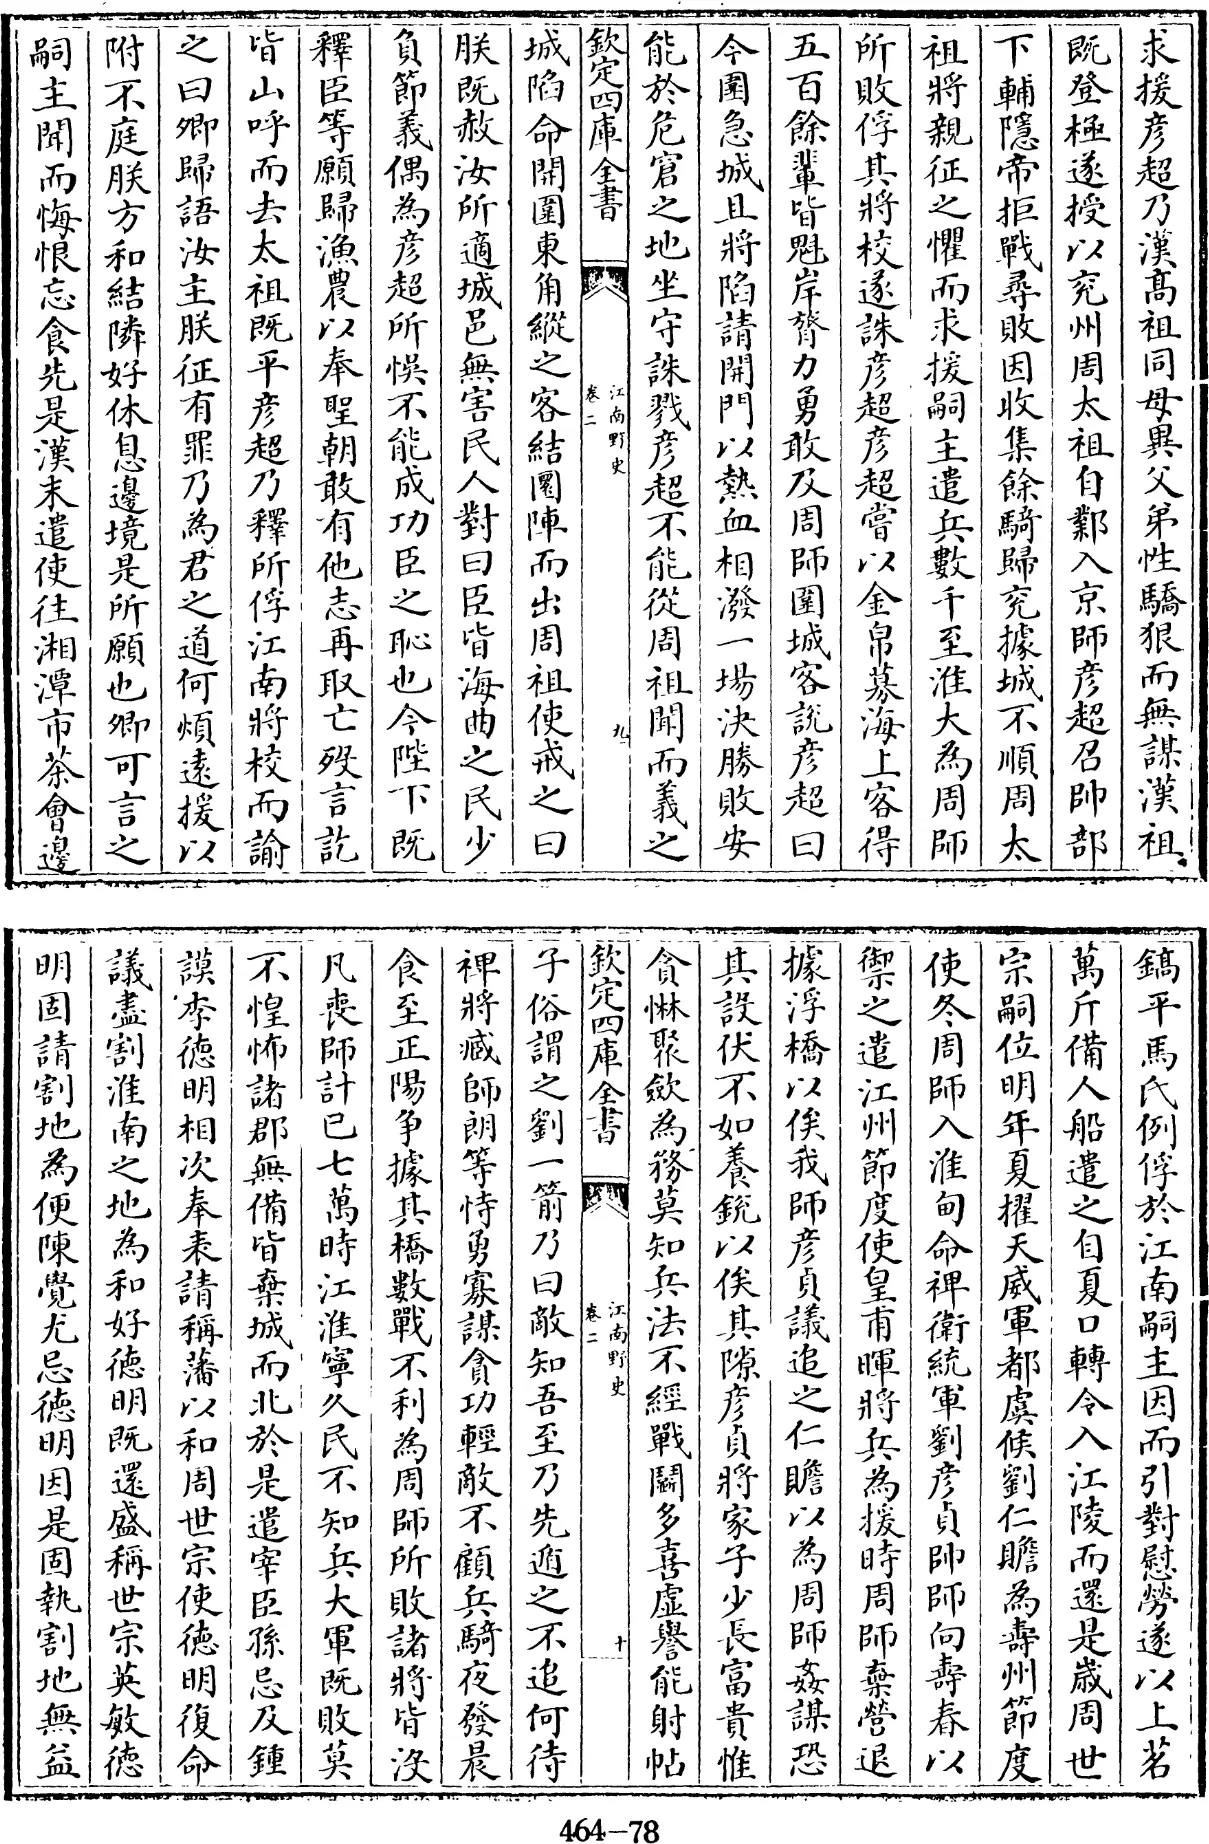 求援彦超乃漢髙祖同母異父弟性驕狠而無謀漢祖
既登極遂授以兖州周太祖自鄴入京師彦超召帥部
下輔隱帝拒戰尋敗因收集餘騎歸兖據城不順周太
祖將親征之懼而求援嗣主遣兵數千至淮大為周師
所敗俘其將校遂誅彦超彦超嘗以金帛募海上客得
五百餘輩皆魁岸膂力勇敢及周師圍城客說彦超曰
今圍急城且將陷請開門以熱血相潑一場決勝敗安
能於危窘之地坐守誅戮彦超不能從周祖聞而義之
欽定四庫全書
江南野史
卷二
九
城陷命開圍東角縱之客結圜陣而出周祖使戒之曰
朕既赦汝所適城邑無害民人對曰臣皆海曲之民少
負節義偶為彦超所悞不能成功臣之恥也今陛下既
釋臣等願歸漁農以奉聖朝敢有他志再取亡殁言訖
皆山呼而去太祖既平彦超乃釋所俘江南將校而諭
之曰卿歸語汝主朕征有罪乃為君之道何煩遠援以
附不庭朕方和結隣好休息邊境是所願也卿可言之
嗣主聞而悔恨忘食先是漢末遣使往湘潭市茶會邊
鎬平馬氏例俘於江南嗣主因而引對慰勞遂以上茗
萬斤備人船遣之自夏口轉令入江陵而還是歲周世
宗嗣位明年夏擢天威軍都虞候劉仁贍為壽州節度
使冬周師入淮甸命神衛統軍劉彦貞帥師向壽春以
禦之遣江州節度使皇甫暉將兵為援時周師棄營退
據浮橋以俟我師彦貞議追之仁贍以為周師姦謀恐
其設伏不如養銳以俟其隙彦貞將家子少長富貴惟
貪惏聚斂為務莫知兵法不經戰鬭多喜虚譽能射帖
欽定四庫全書
江南野史
卷二
十
子俗謂之劉一箭乃曰敵知吾至乃先遁之不追何待
裨將臧師朗等恃勇寡謀貪功輕敵不顧兵騎夜發晨
食至正陽争據其橋數戰不利為周師所敗諸將皆沒
凡喪師計已七萬時江淮寧久民不知兵大軍既敗莫
不惶怖諸郡無備皆棄城而北於是遣宰臣孫忌及鍾
謨李德明相次奉表請稱藩以和周世宗使德明復命
議盡割淮南之地為和好德明既還盛稱世宗英敏德
明固請割地為便陳覺尤忌德明因是固執割地無益
464-78